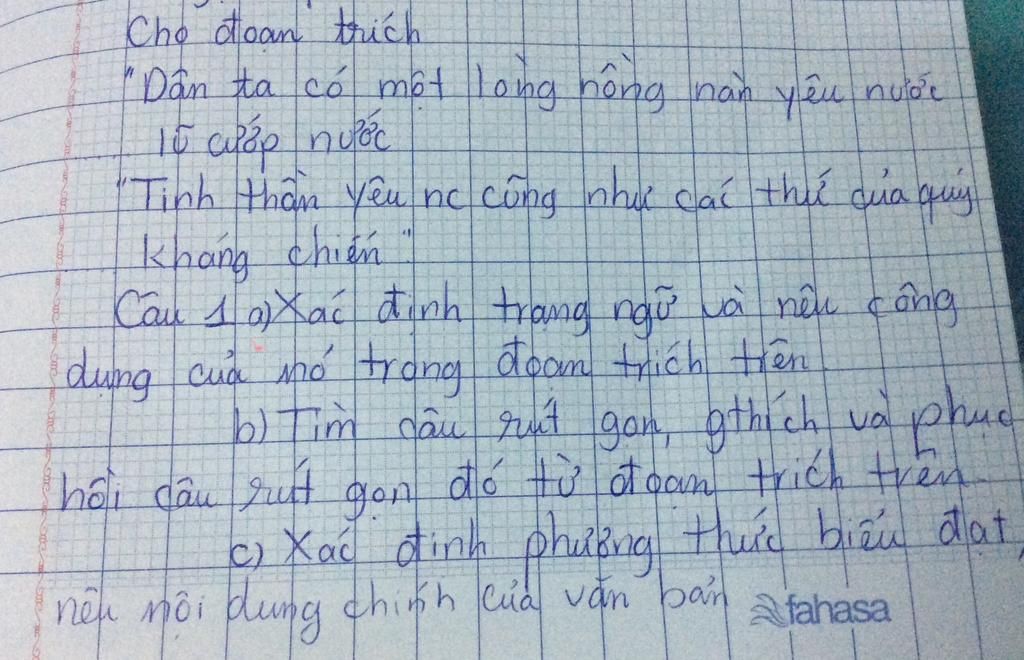 Cho đoạn trích
"Dân ta có một lòng nồng nàn yêu nước
lũ cướp nước
"Tinh thần yêu nc cũng như các thứ của quý
kháng chiến"
Câu 1 a) Xác định trạng ngữ và nêu công
dụng của nó trong đoạn trích trên
b) Tìm câu rút gọn, gthích và phục
hồi câu rút gọn đó từ đoạn trích trên
c) Xác định phương thức biểu đạt,
nêu nội dung chính của văn bản
fahasa